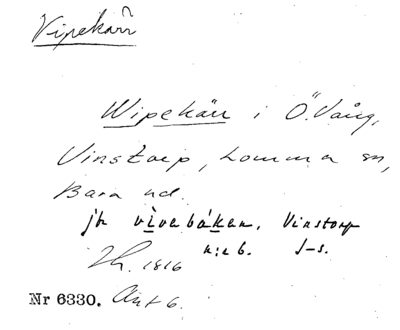 Vipekärr
Wipekärr i Ö. Vång,
Vinstorp, Lomma sn,
Bara hd.
jfr vivebäken, Vinstorp
n:o 6. f-s.
Th. 1816
Nr 6330. Ant 6.